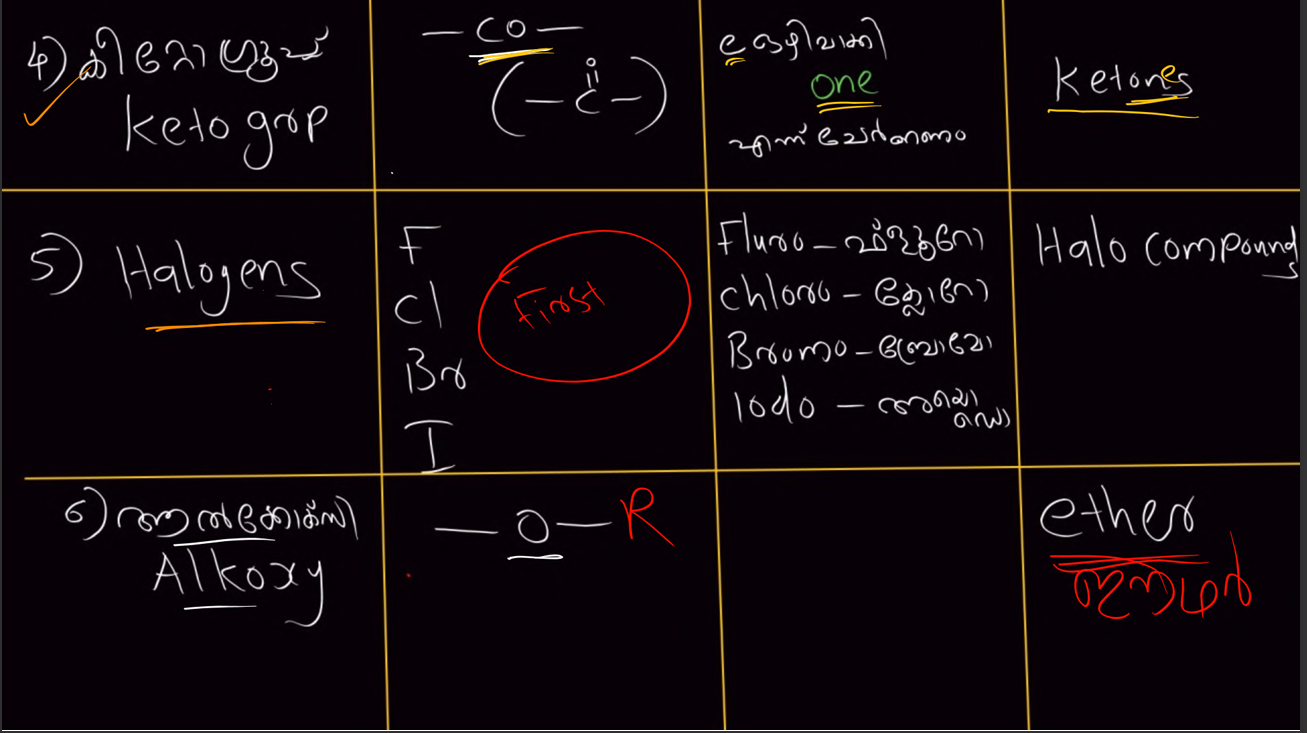 4) കീറ്റോ ഗ്രൂപ്പ്
keto grp
—CO—
O
(—C—)
e ഒഴിവാക്കി
one
എന്ന് ചേർക്കണം
Ketones
5) Halogens
F
Cl
Br
I
First
Fluro – ഫ്ളൂറോ
Chloro – ക്ലോറോ
Bromo – ബ്രോമോ
Iodo – അയോഡോ
Halo compounds
6) ആൽക്കോക്സി
Alkoxy
—O—R
ether
ഈഥർ